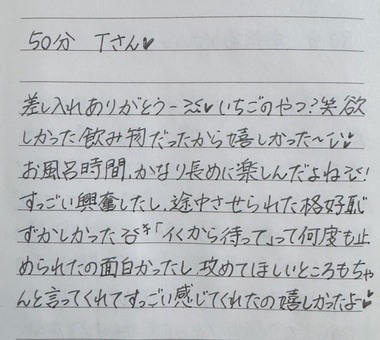 50分 Tさん♥
差し入れありがとうー♥いちごのやつ？笑欲
しかった飲み物だったから嬉しかった〜♥
お風呂時間、かなり長めに楽しんだよね!
すっごい興奮したし、途中させられた格好恥
ずかしかった「イくから待って」って何度も止
められたの面白かったし、攻めてほしいところもちゃ
んと言ってくれてすっごい感じてくれたの嬉しかったよ♥